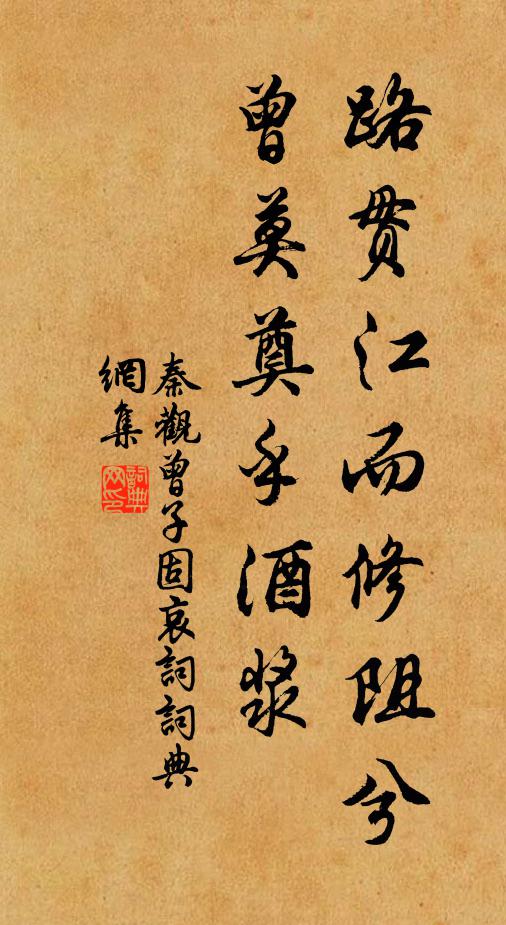 路贯江而修阻兮
曾莫奠乎酒浆
秦觀曾子固哀詞詞典
網集
詞典
网印